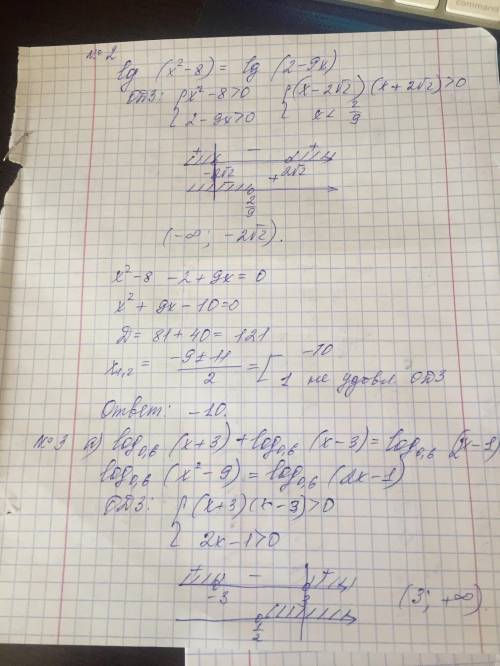 №2
lg (x²-8) = lg (2-9x)
ОДЗ: { x²-8>0 { (x-2√2)(x+2√2)>0
{ 2-9x>0 { x< 2/9
+ - +
-2√2 2√2
+
2/9
(-∞; -2√2).
x²-8 -2+9x=0
x²+9x-10=0
Д= 81+40= 121
x₁,₂ = (-9±11)/2 = [ -10
1 не удовл. ОДЗ
Ответ: -10.
№3 а) log₀,₆ (x+3) + log₀,₆ (x-3) = log₀,₆ (2x-1)
log₀,₆ (x²-9) = log₀,₆ (2x-1)
ОДЗ: { (x+3)(x-3)>0
{ 2x-1>0
+ - +
-3 3 (3; +∞)
1/2